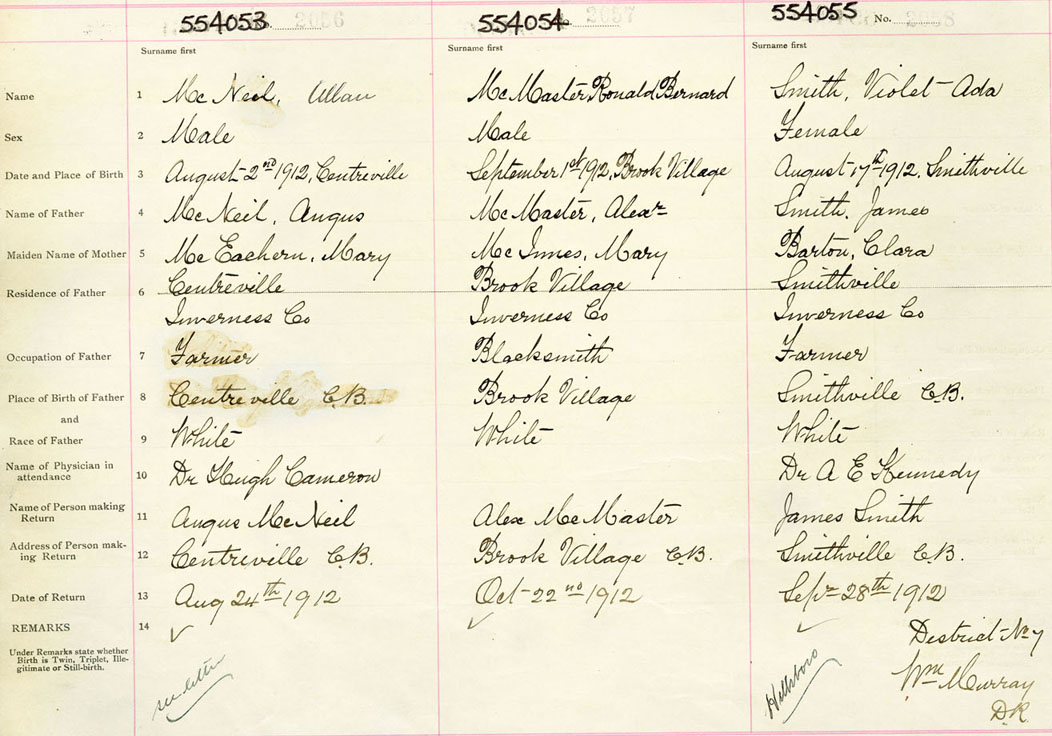 554053 No. 2056 554054 2057 554055 No. 2058
Surname first Surname first Surname first
Name 1 McNeil, McMaster, Ronald Bernard Smith, Violet Ada
Sex 2 Male Male Female
Date and Place of Birth 3 August 2nd 1912, Centreville September 1st 1912, Brook Village August 17th 1912, Smithville
Name of Father 4 McNeil, Angus McMaster, Alexr Smith, James
Maiden Name of Mother 5 McEachern, Mary McInnes, Mary Barton, Clara
Residence of Father 6 Centreville Brook Village Smithville
Inverness Co Inverness Co Inverness Co
Occupation of Father 7 Farmer Blacksmith Farmer
Place of Birth of Father 8 Centreville C.B. Brook Village Smithville C.B.
and
Race of Father 9 White White White
Name of Physician in
attendance 10 Dr Hugh Cameron Dr A E Kennedy
Name of Person making
Return 11 Angus McNeil Alex McMaster James Smith
Address of Person mak-
ing Return 12 Centreville C.B. Brook Village C.B. Smithville C.B.
Date of Return 13 Aug 24th 1912 Oct 22nd 1912 Sepr 28th 1912
REMARKS 14
Under Remarks state whether
Birth is Twin, Triplet, Ille-
gitimate or Still-birth.
see letter
Hillsboro
District No 7
Wm Murray
D.R.